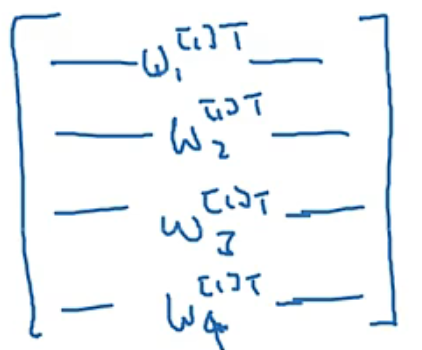 — w₁^[1]T —
— w₂^[1]T —
— w₃^[1]T —
— w₄^[1]T —